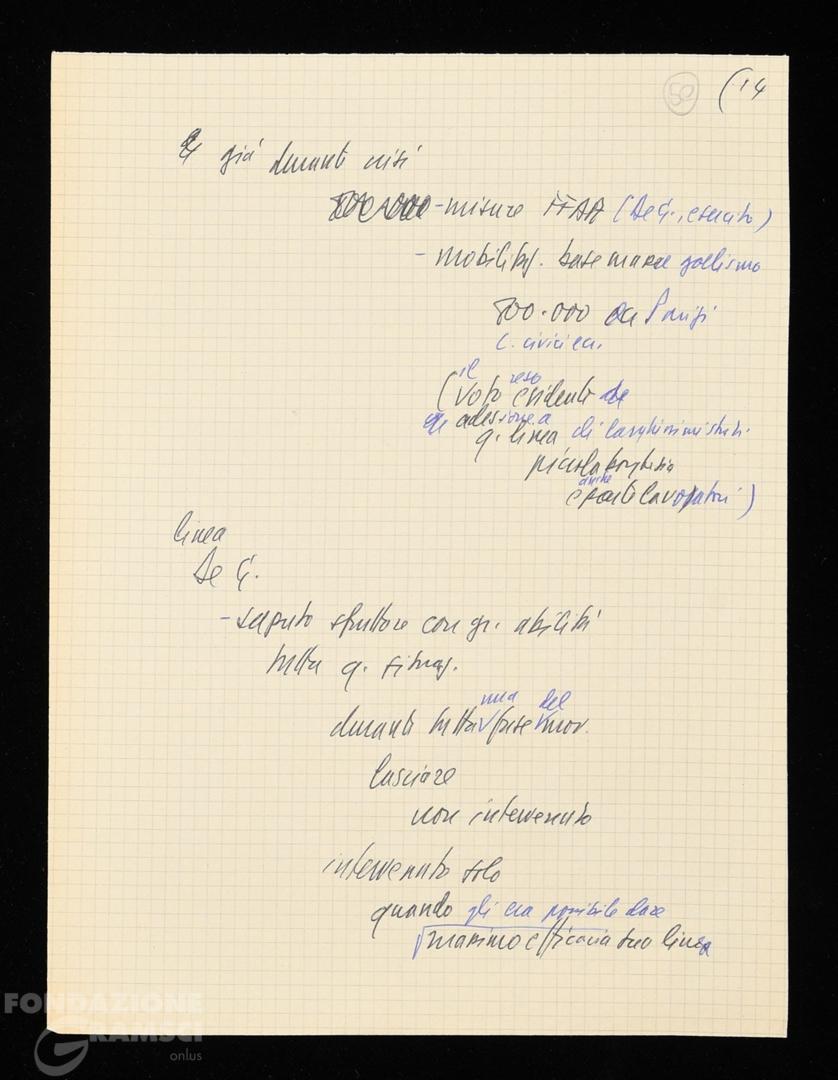 50 (14
E già durante crisi
800.000 - misure FFAA (De G., esercito)
- mobilitaz. base massa gollismo
800.000 da Parigi
C. civici ecc.
(il voto reso evidente
adesione a
q. linea di larghissimi strati
piccola borghesia
e anche lavoratori)
linea
De G.
- saputo sfruttare con gr. abilità
tutta q. situaz.
durante tutta una fase del mov.
lasciare
non intervenuto
intervenuto solo
quando gli era possibile dare
massimo efficacia suo linea
FONDAZIONE
GRAMSCI
onlus